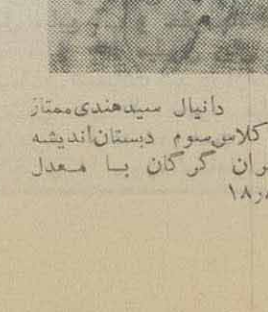 دانیال سیدهندی ممتاز
کلاس سوم دبستان اندیشه
ران گرگان با معدل
۱۸٫۸